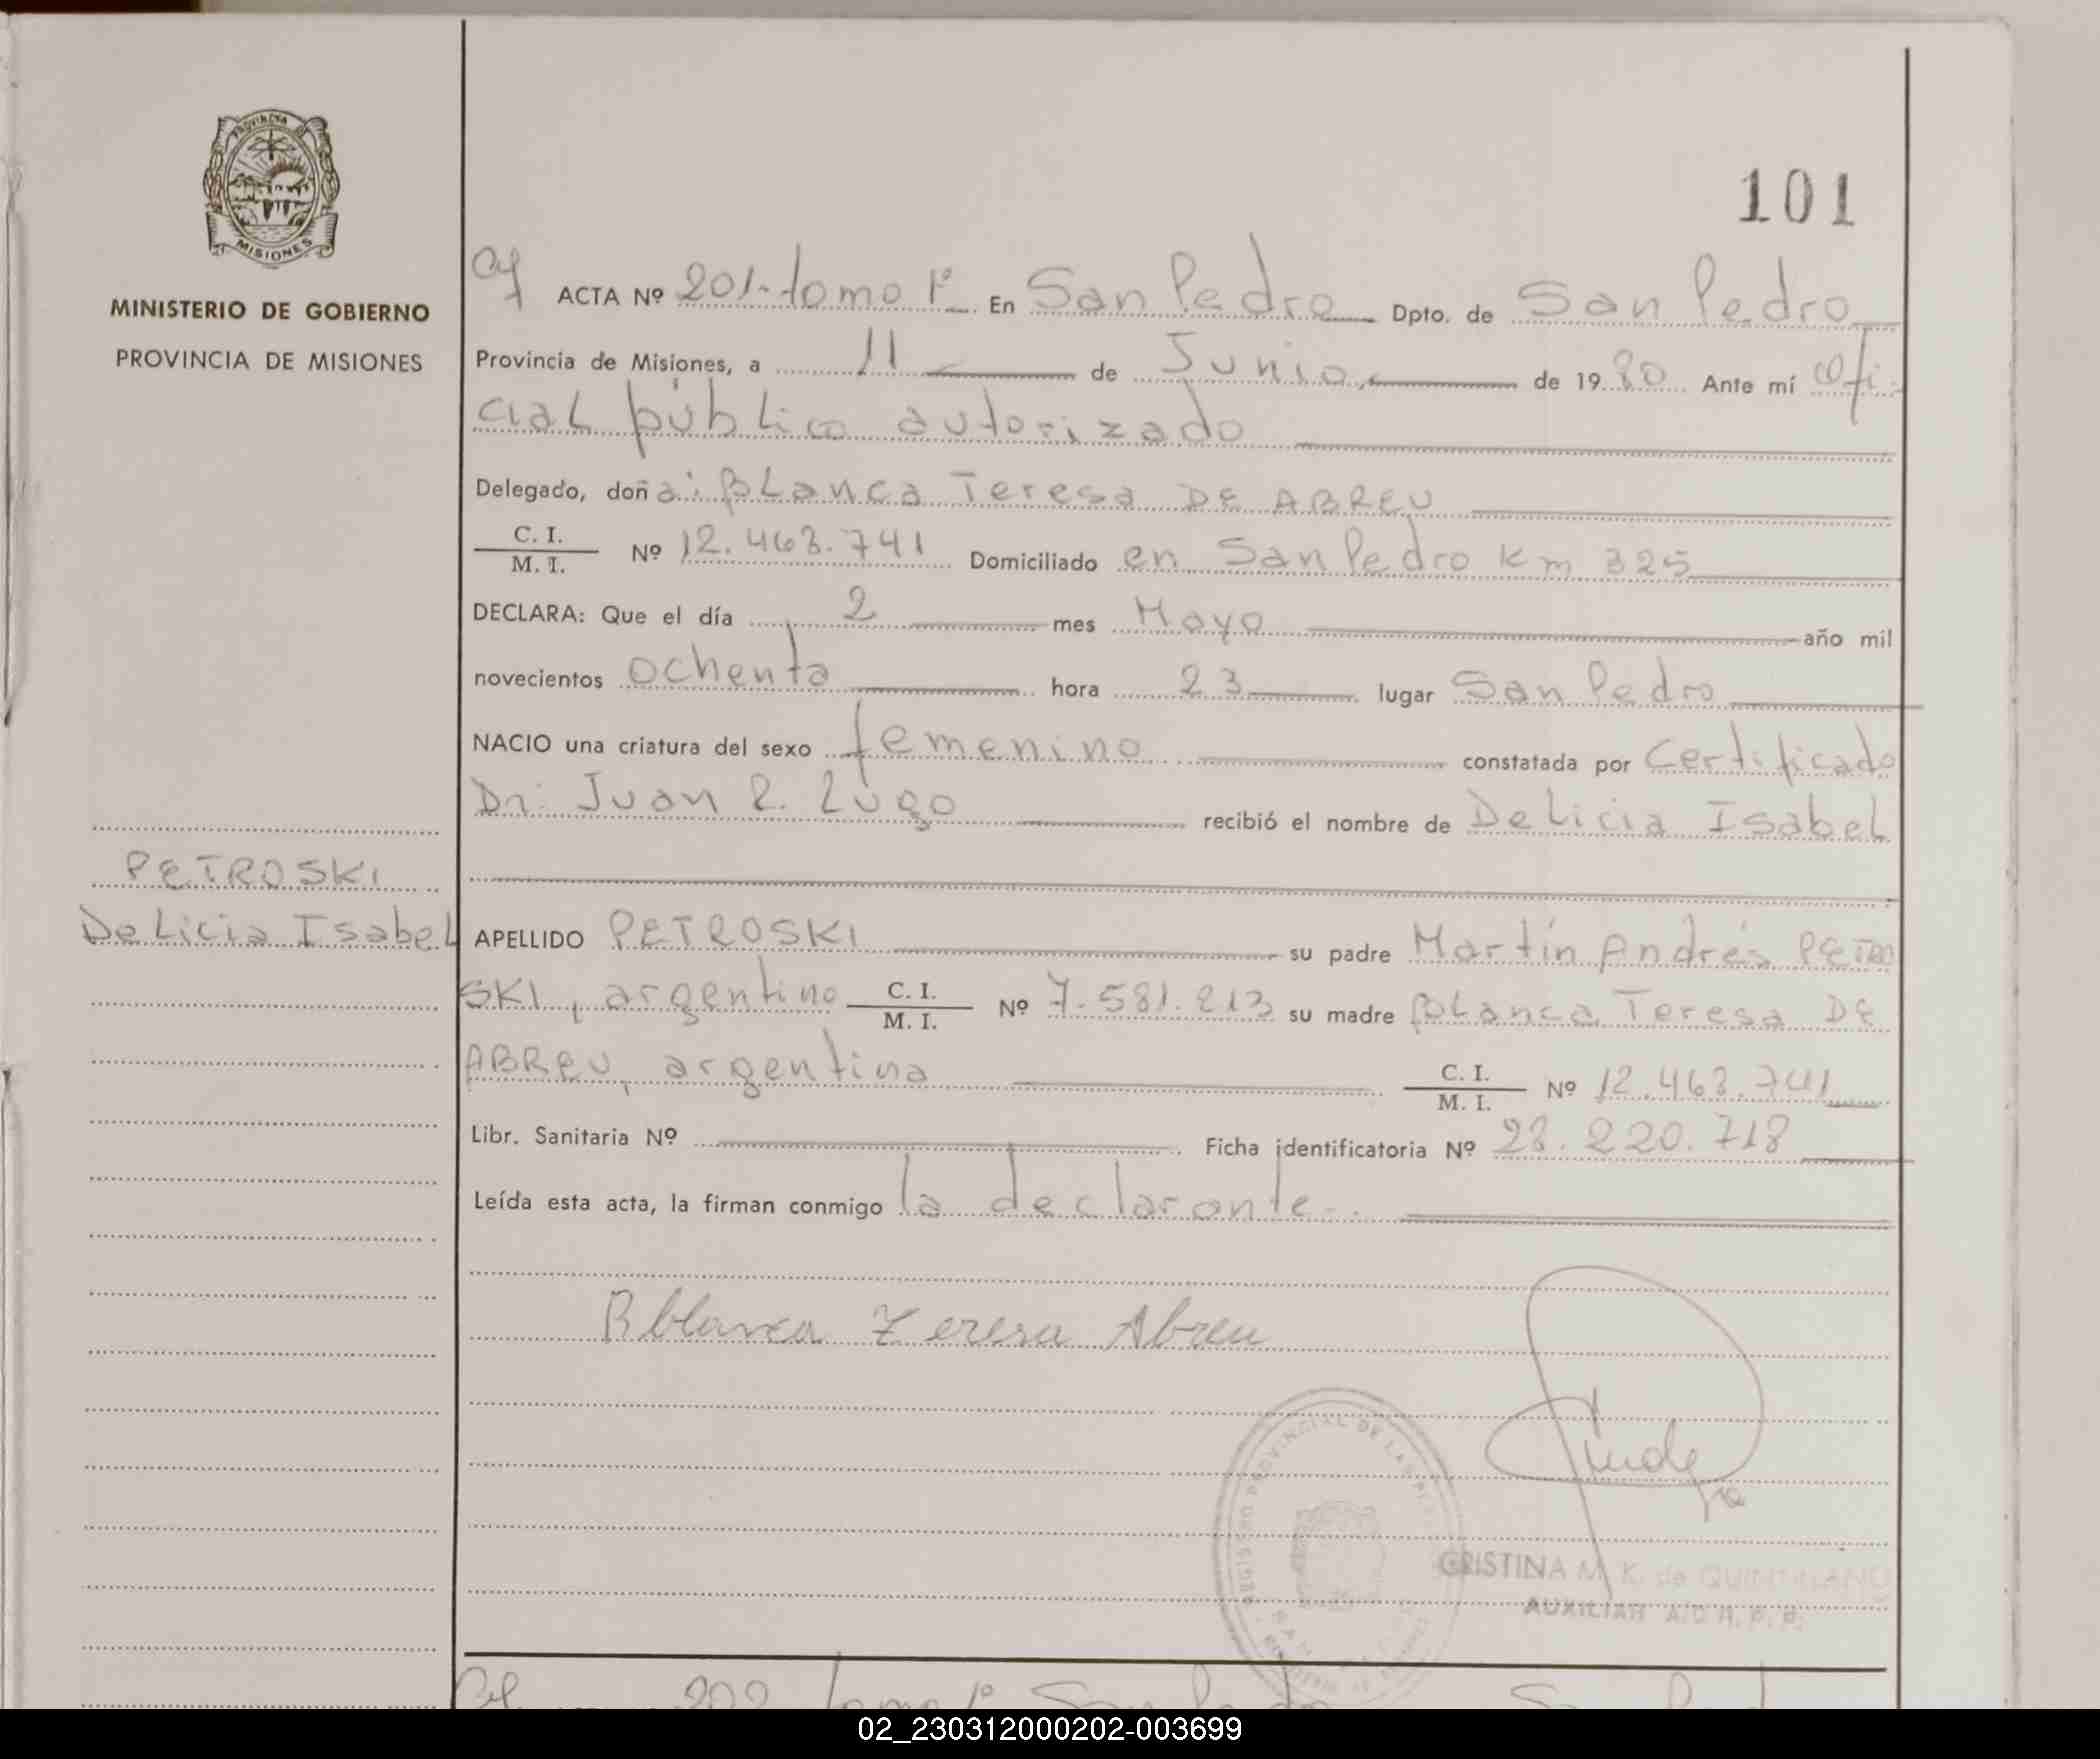 PROVINCIA DE
MISIONES
MINISTERIO DE GOBIERNO
PROVINCIA DE MISIONES
PETROSKI
Delicia Isabel
101
ACTA Nº 201-tomo 1º En San Pedro Dpto. de San Pedro
Provincia de Misiones, a 11 de Junio, de 1980 Ante mí Ofi-
cial público autorizado
Delegado, doña: Blanca Teresa DE ABREU
C. I.
M. I. Nº 12.463.741 Domiciliado en San Pedro Km 325
DECLARA: Que el día 2 mes Mayo año mil
novecientos ochenta hora 23 lugar San Pedro
NACIO una criatura del sexo femenino constatada por Certificado
Dr. Juan R. Lugo recibió el nombre de Delicia Isabel
APELLIDO PETROSKI su padre Martín Andrés PETRO
SKI, argentino C. I.
M. I. Nº 7.581.213 su madre Blanca Teresa DE
ABREU, argentina C. I.
M. I. Nº 12.463.741
Libr. Sanitaria Nº Ficha identificatoria Nº 28.220.718
Leída esta acta, la firman conmigo la declarante.
Bblanca Teresa Abreu
REGISTRO PROVINCIAL DE LAS
CRISTINA M. K. de QUINTILIANO
AUXILIAR A/C R. P. P.
202 tomo 1º San Pedro San Ped
02_230312000202-003699